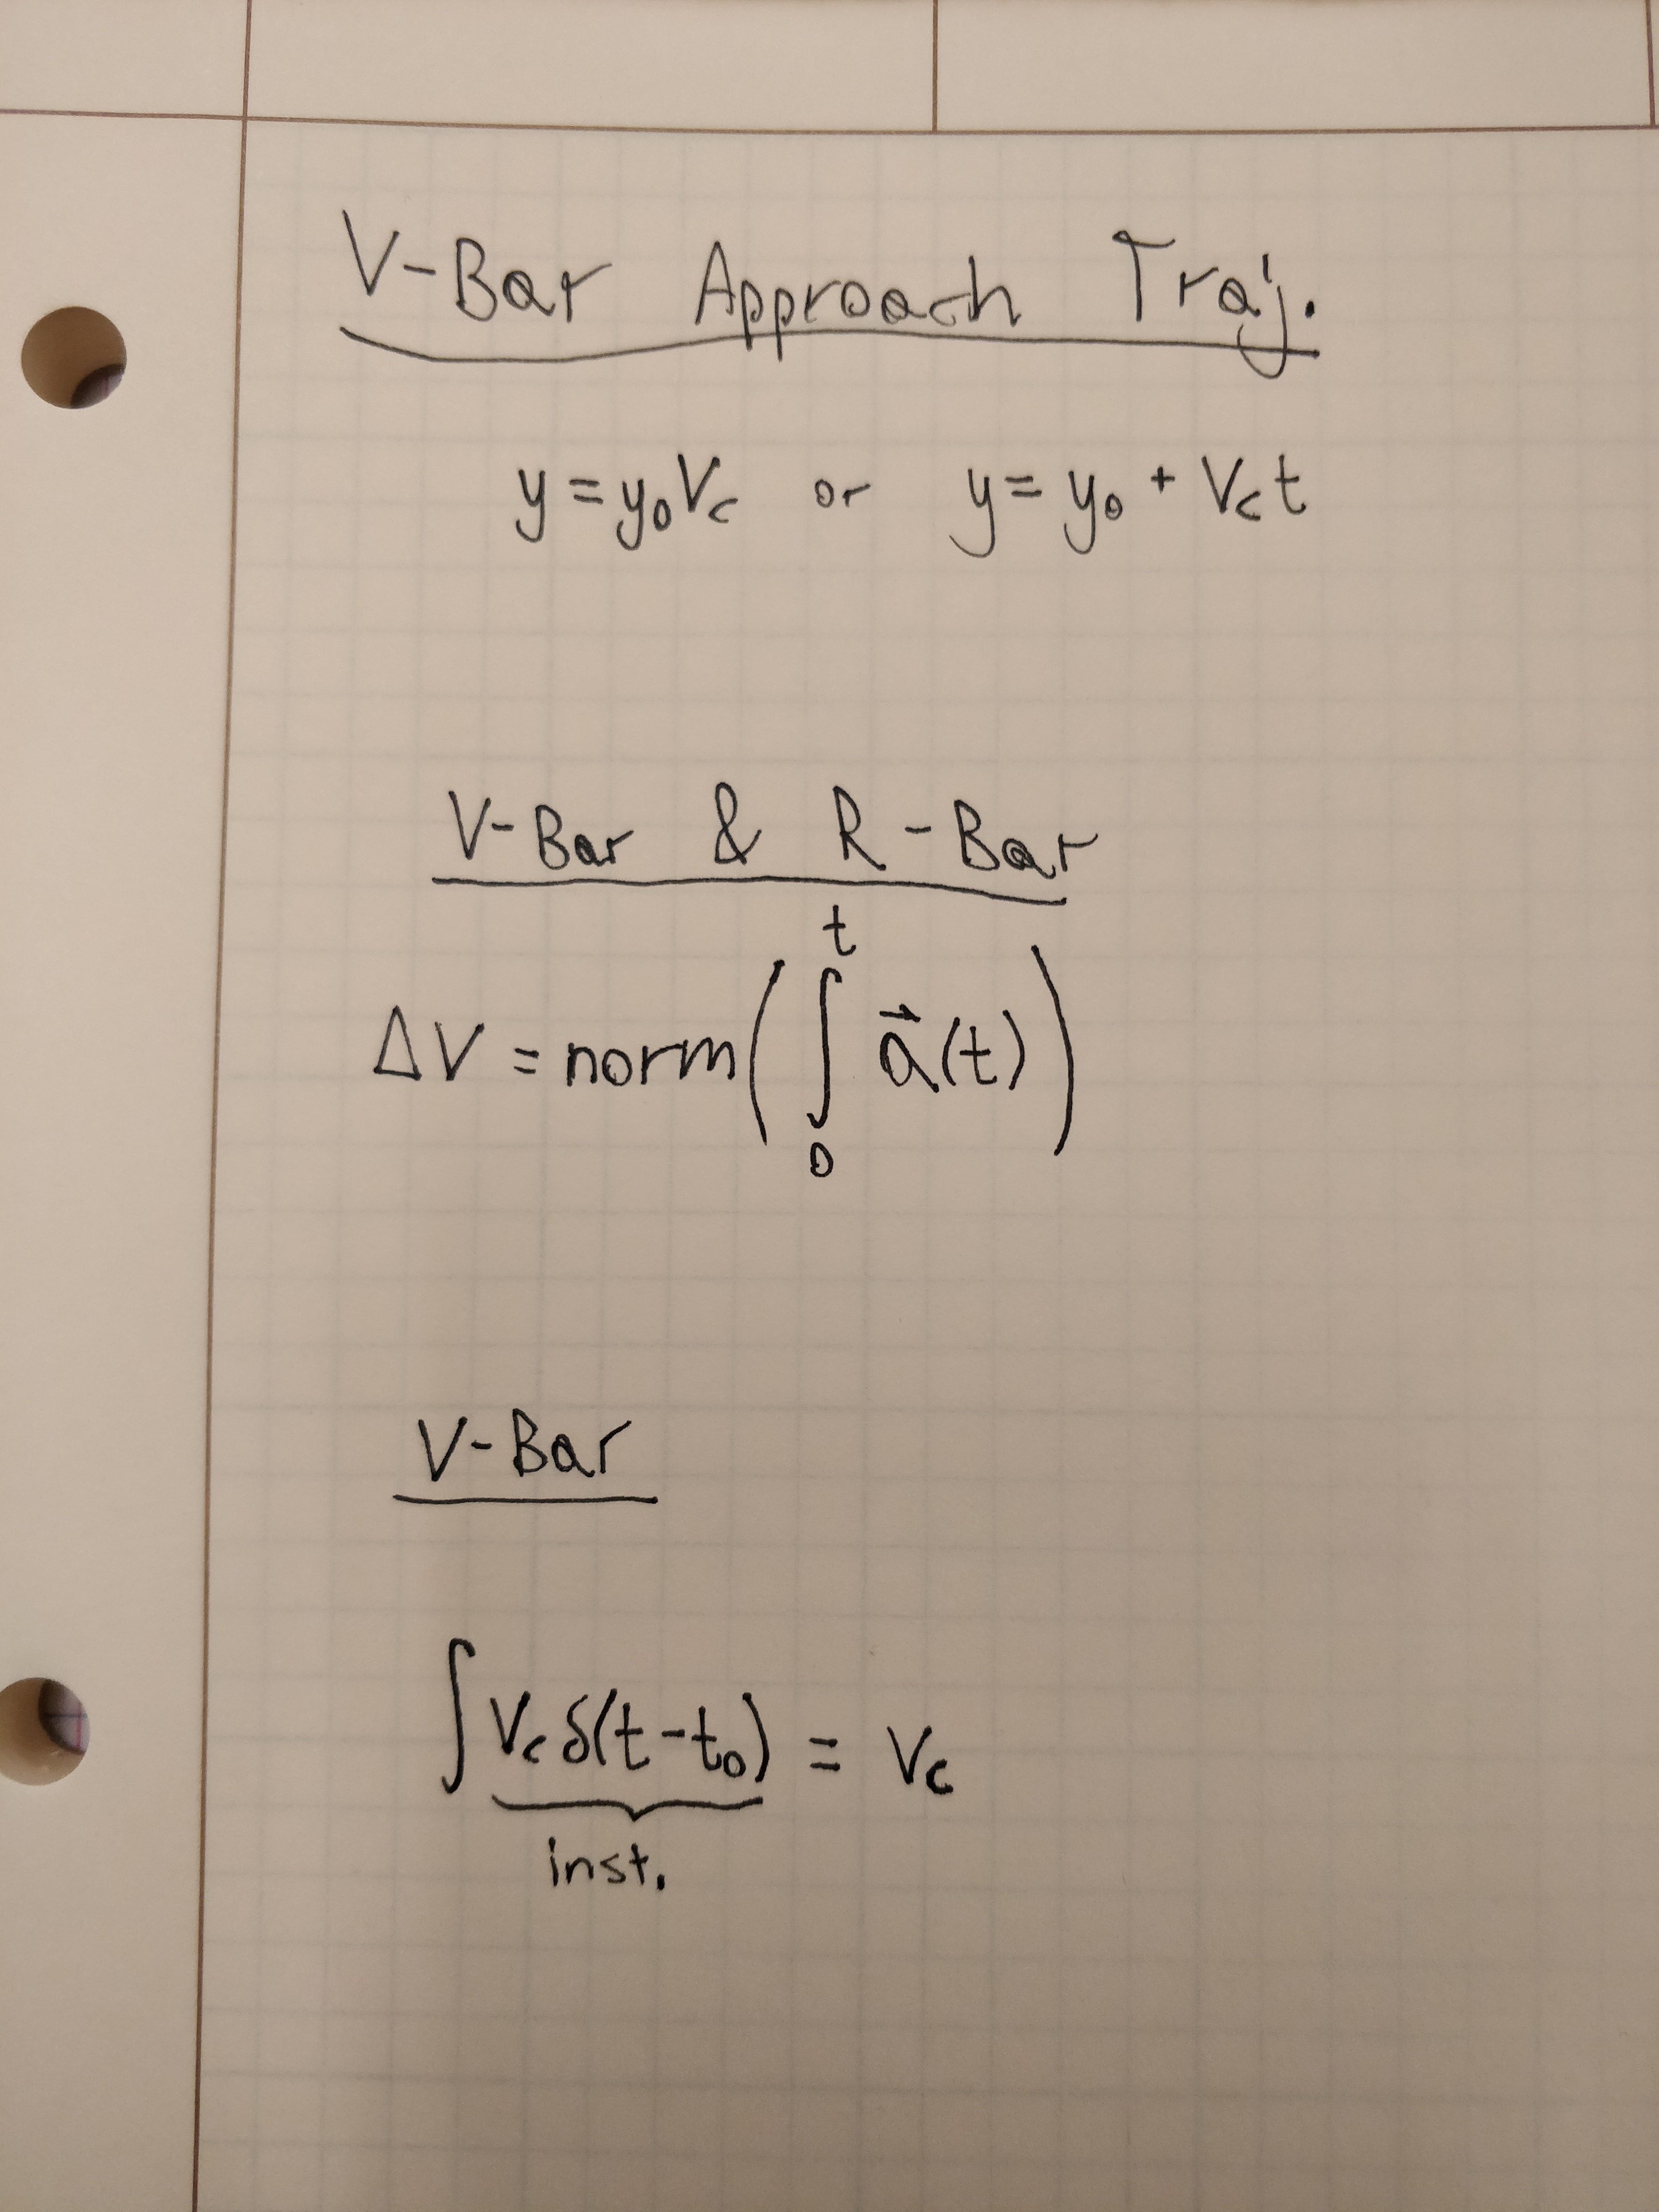 V-Bar Approach Traj.
y = y₀ V_c or y = y₀ + V_c t
V-Bar & R-Bar
ΔV = norm(∫₀ᵗ a⃗(t))
V-Bar
∫ V_c δ(t - t₀) = V_c
inst.